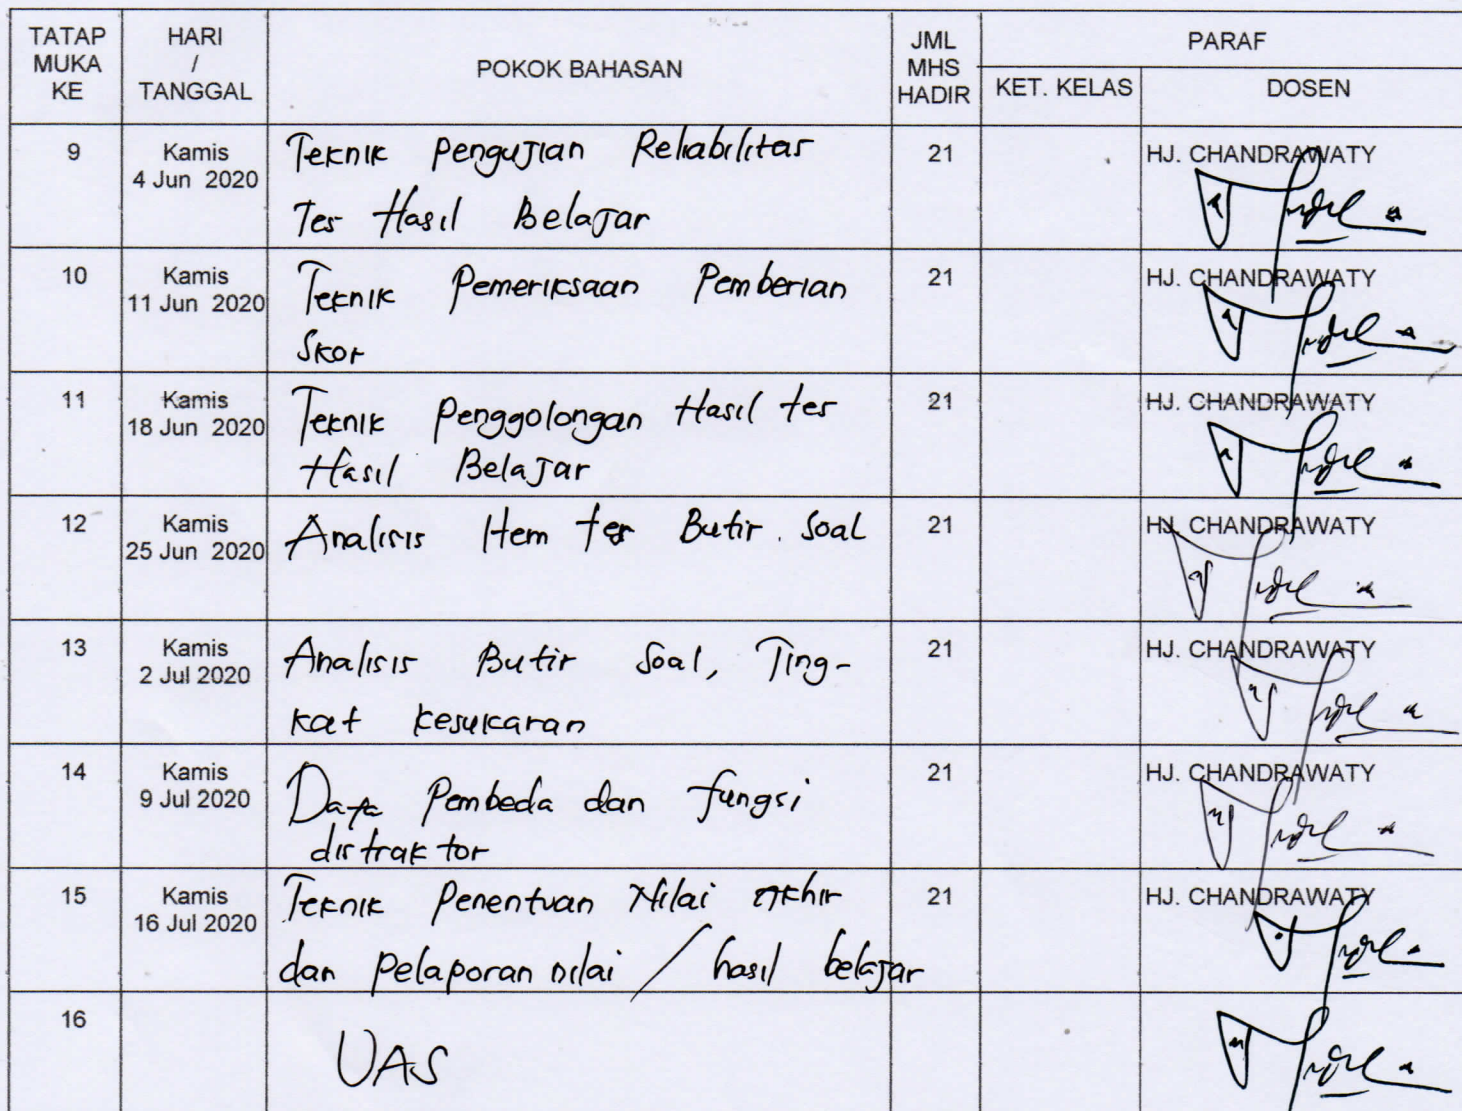 TATAP MUKA KE
HARI / TANGGAL
POKOK BAHASAN
JML MHS HADIR
PARAF
KET. KELAS
DOSEN
9
Kamis
4 Jun 2020
Teknik Pengujian Reliabilitas
Tes Hasil Belajar
21
HJ. CHANDRAWATY
10
Kamis
11 Jun 2020
Teknik Pemeriksaan Pemberian
Skor
21
HJ. CHANDRAWATY
11
Kamis
18 Jun 2020
Teknik Penggolongan Hasil tes
Hasil Belajar
21
HJ. CHANDRAWATY
12
Kamis
25 Jun 2020
Analisis Item tes Butir Soal
21
HJ. CHANDRAWATY
13
Kamis
2 Jul 2020
Analisis Butir Soal, Ting-
kat kesukaran
21
HJ. CHANDRAWATY
14
Kamis
9 Jul 2020
Daya Pembeda dan fungsi
distraktor
21
HJ. CHANDRAWATY
15
Kamis
16 Jul 2020
Teknik Penentuan Nilai Akhir
dan Pelaporan nilai / hasil belajar
21
HJ. CHANDRAWATY
16
UAS